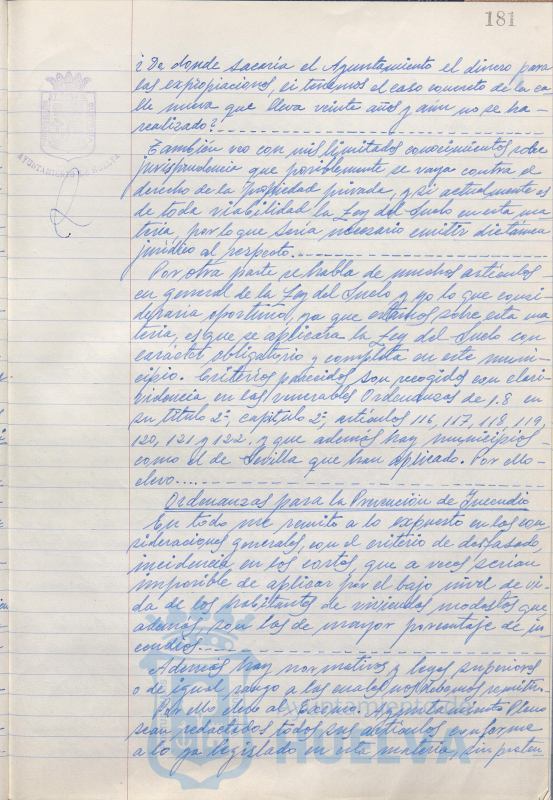 181
¿De donde sacaria el Ayuntamiento el dinero para
las expropiaciones, si tenemos el caso concreto de la ca
lle nueva que lleva veinte años y aún no se ha
realizado?
También veo con mis limitados conocimientos sobre
jurisprudencia que posiblemente se vaya contra el
derecho de la propiedad privada, y si actualmente es
de toda viabilidad la Ley del Suelo en esta ma
teria, por lo que seria necesario emitir dictamen
jurídico al respecto.
Por otra parte se habla de muchos artículos
en general de la Ley del Suelo y yo lo que consi
deraria oportuno, ya que estamos sobre esta ma
teria, es que se aplicara la Ley del Suelo con
caracter obligatorio y completa en este muni-
cipio. Criterios parecidos son recogidos con clari
videncia en las venerables Ordenanzas de 1.8 en
su título 2º, capitulo 2º, artículos 116, 117, 118, 119,
120, 121 y 122, y que además hay municipios
como el de Sevilla que han aplicado. Por ello
elevo....
Ordenanzas para la Prevención de Incendio
En todo me remito a lo expuesto en las con
sideraciones generales, con el criterio de desfasado,
incidencia en los costos, que a veces serian
imposible de aplicar por el bajo nivel de vi
da de los habitantes de viviendas modestas que
además son las de mayor porcentaje de in
cendios.
Ademas hay normativas y leyes superiores
o de igual rango a las cuales nos debemos remitir.
Por ello elevo al Excmo. Ayuntamiento Pleno
sean redactados todos sus artículos conforme
a lo ya legislado en esta materia, sin preten
AYUNTAMIENTO DE HUELVA
Ayuntamiento de
HUELVA